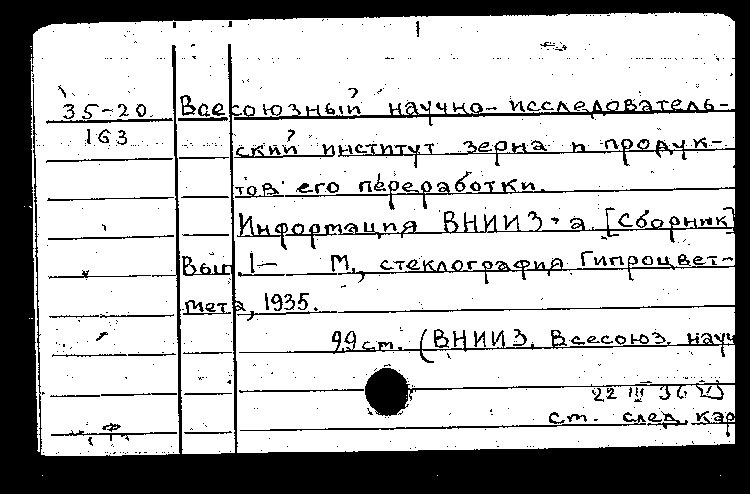 35-20 Всесоюзный научно-исследователь-
163 ский институт зерна и продук-
тов его переработки.
Информация ВНИИЗ-а [Сборник]
Вып. 1- М., стеклография Гипроцвет-
мета, 1935.
99 ст. (ВНИИЗ. Всесоюз. науч
22 III 36
ст. след. кар